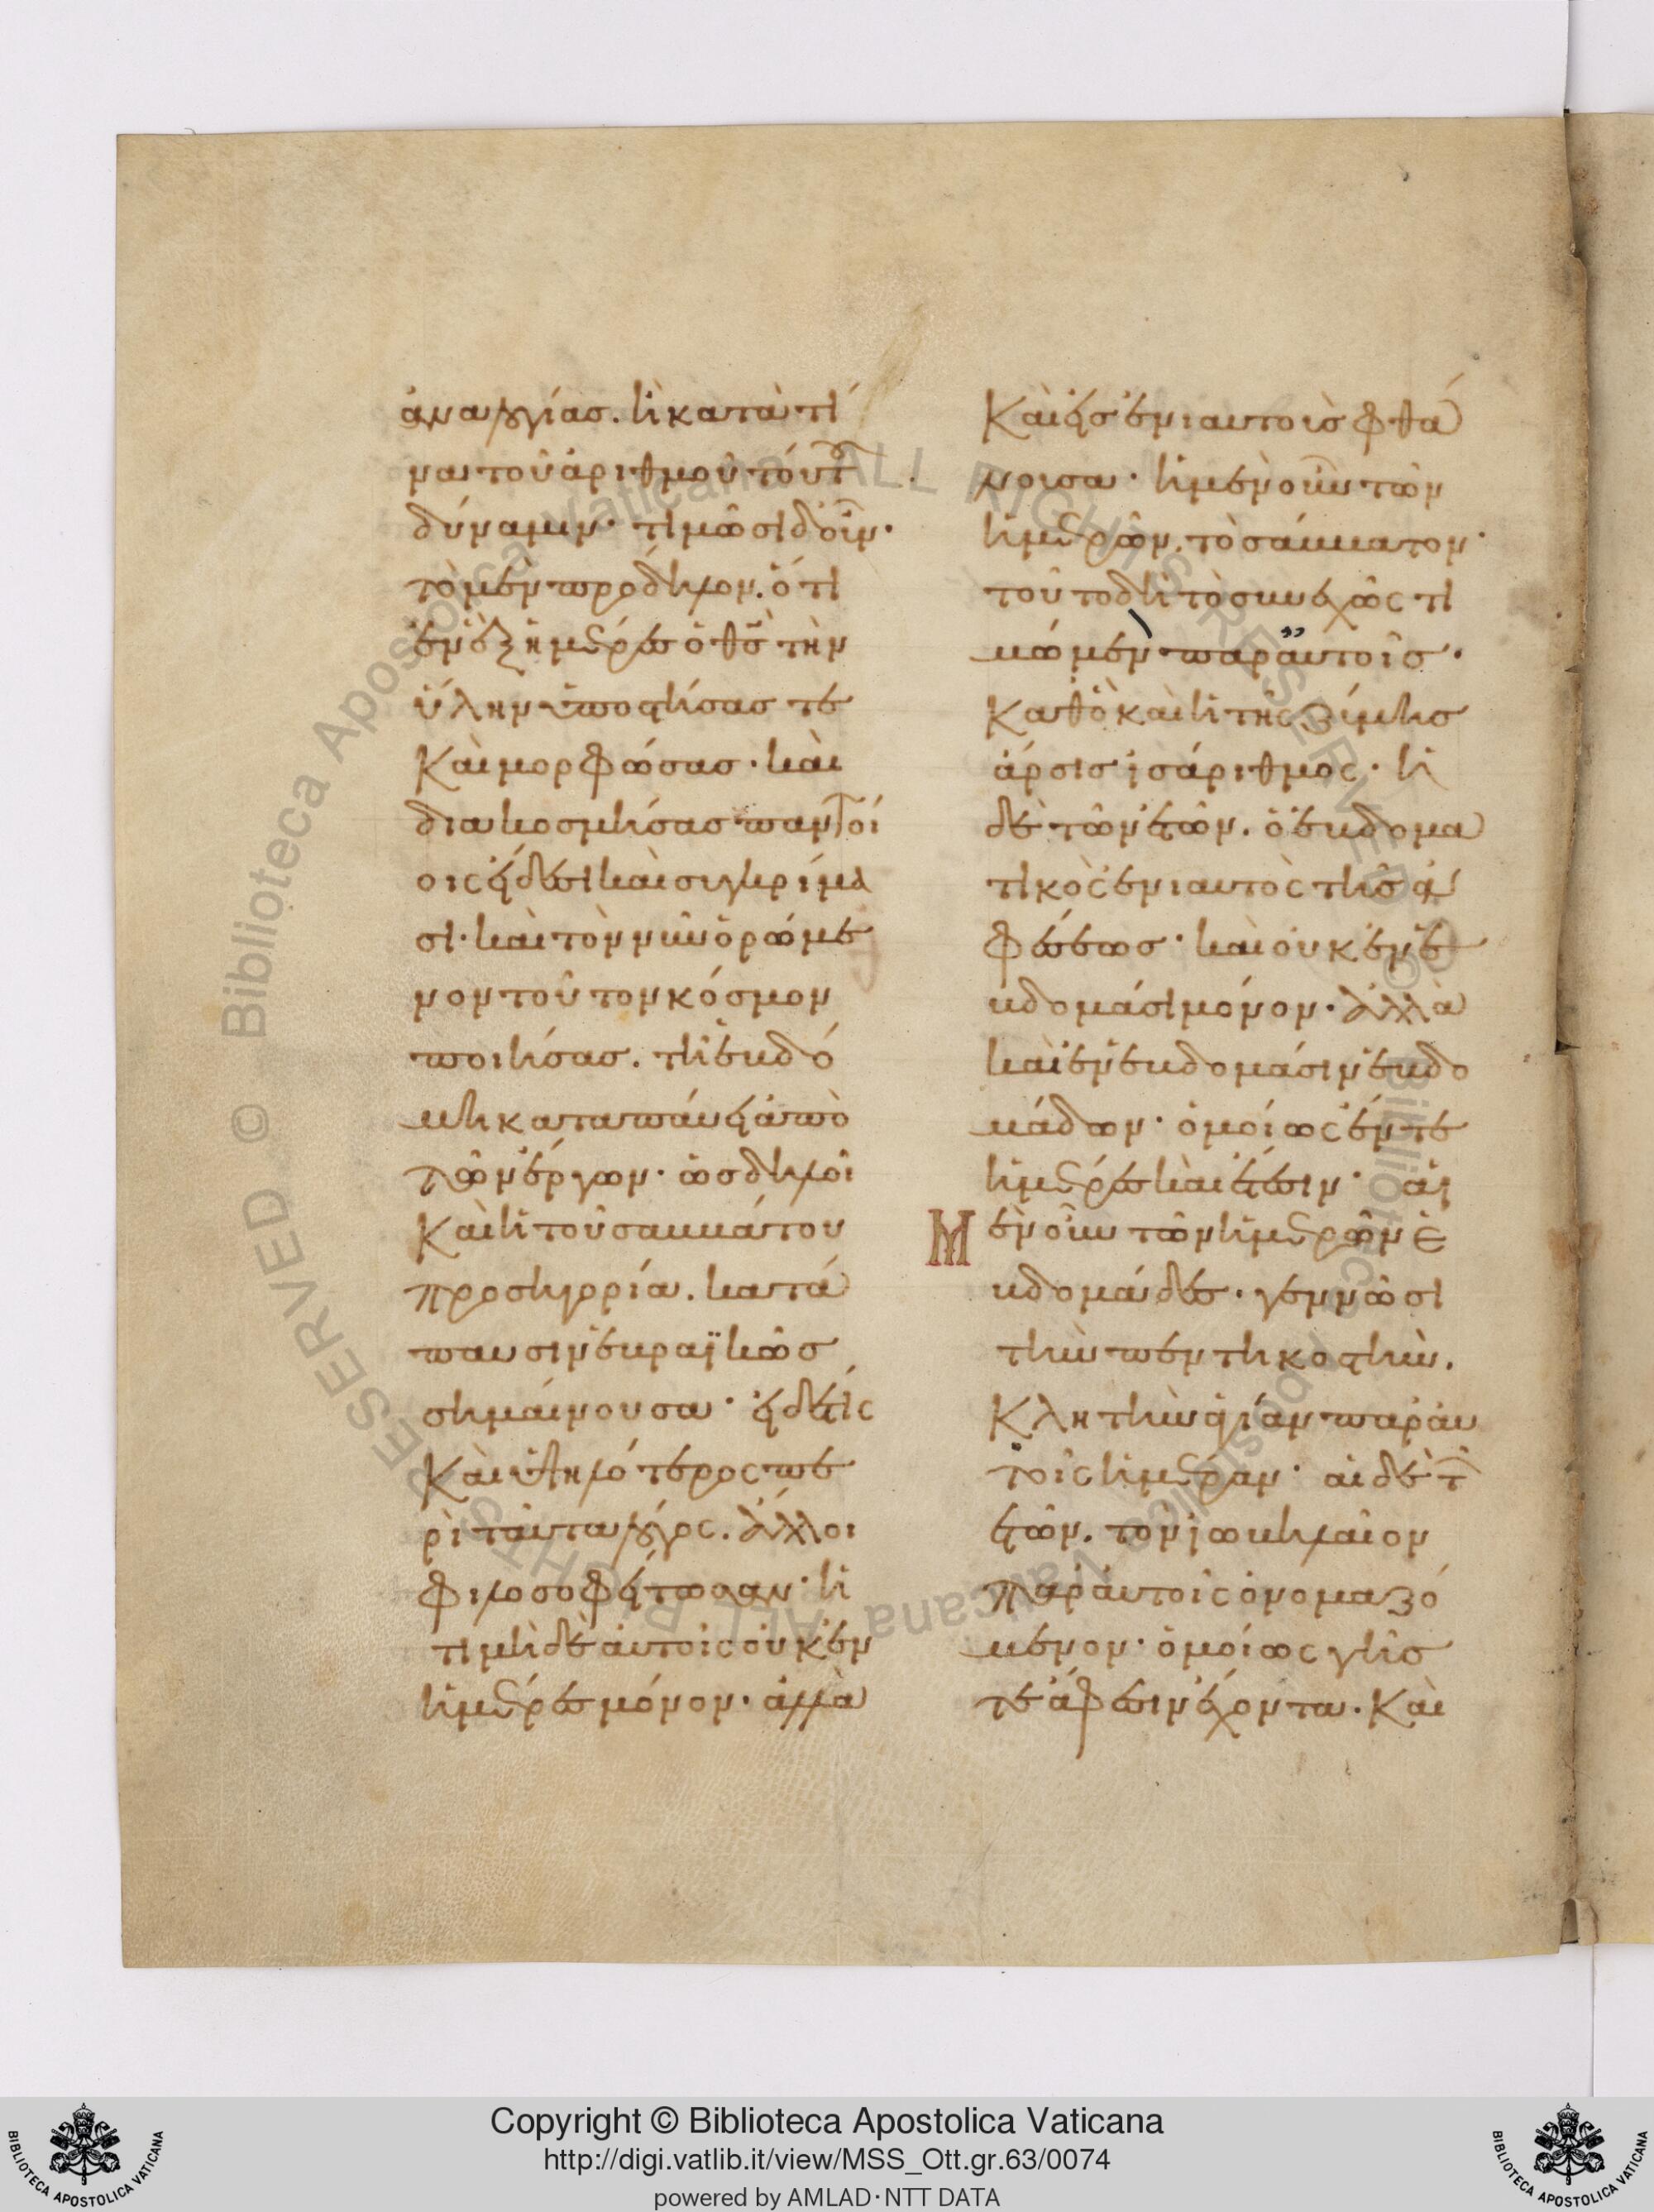 ἀναλογίας. ἢ κατὰ τί
να τοῦ ἀριθμοῦ τούτου
δύναμιν· τιμῶσι δ' οὖν·
τὸ μὲν πρόδηλον. ὅτι
ἐν ἓξ ἡμέραις ὁ θς τὴν
ὕλην ὑποστήσας τε
καὶ μορφώσας· καὶ
διακοσμήσας παντοί
οις εἴδεσι καὶ συγκρίμα
σι· καὶ τὸν νῦν ὁρώμε
νον τοῦτον κόσμον
ποιήσας. τῇ ἑβδό
μῃ καταπαύει ἀπὸ
τῶν ἔργων· ὡς δηλοῖ
καὶ ἡ τοῦ σαββάτου
προσηγορία. κατά
παυσιν ἑβραϊκῶς
σημαίνουσα· εἰ δέ τις
καὶ ὑψηλότερος πε
ρὶ ταῦτα λόγος. ἄλλοι
φιλοσοφείτωσαν· ἡ
τιμὴ δὲ αὐτοῖς οὐκ ἐν
ἡμέραις μόνον· ἀλλὰ
καὶ εἰς ἐνιαυτοὺς φθά
νουσα· ἡ μὲν οὖν τῶν
ἡμερῶν. τὸ σάββατον·
τοῦτο δὴ τὸ συνεχῶς τι
μώμενον παρ' αὐτοῖς·
καθὸ καὶ ἡ τῆς ζύμης
ἄρσις ἰσάριθμος· ἡ
δὲ τῶν ἐτῶν. ὁ ἑβδομα
τικὸς ἐνιαυτὸς τῆς ἀ
φέσεως· καὶ οὐκ ἐν ἑ
βδομάσι μόνον· ἀλλὰ
καὶ ἐν ἑβδομάσιν ἑβδο
μάδων· ὁμοίως ἔν τε
ἡμέραις καὶ ἔτεσιν· αἱ
μὲν οὖν τῶν ἡμερῶν ἑ
βδομάδες· γεννῶσι
τὴν πεντηκοστὴν.
κλητὴν ἁγίαν παρ' αὐ
τοῖς ἡμέραν· αἱ δὲ τῶν
ἐτῶν. τὸν ἰωβηλαῖον
παρ' αὐτοῖς ὀνομαζό
μενον· ὁμοίως γῆς
τε ἄφεσιν ἔχοντα. καὶ
Copyright © Biblioteca Apostolica Vaticana
http://digi.vatlib.it/view/MSS_Ott.gr.63/0074
powered by AMLAD·NTT DATA
BIBLIOTECA APOSTOLICA VATICANA
BIBLIOTECA APOSTOLICA VATICANA